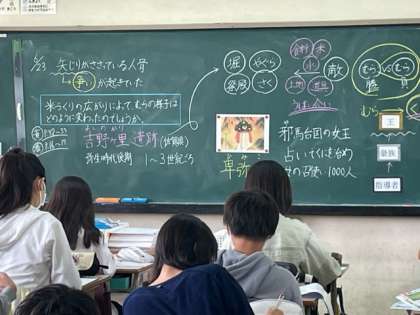 6/23 矢じりがささっている人骨
争いが起きていた
米づくりの広がりによって、むらの様子は
どのように変わったのでしょうか。
吉野ヶ里遺跡(佐賀県)
弥生時代後期 1~3世紀ごろ
堀 やぐら
さく
食料 米
小 敵
土地 道具
うばい合い
邪馬台国の女王
占いでくにを治め
の召使い1000人
むら VS むら
勝 負
むら
王
豪族
指導者